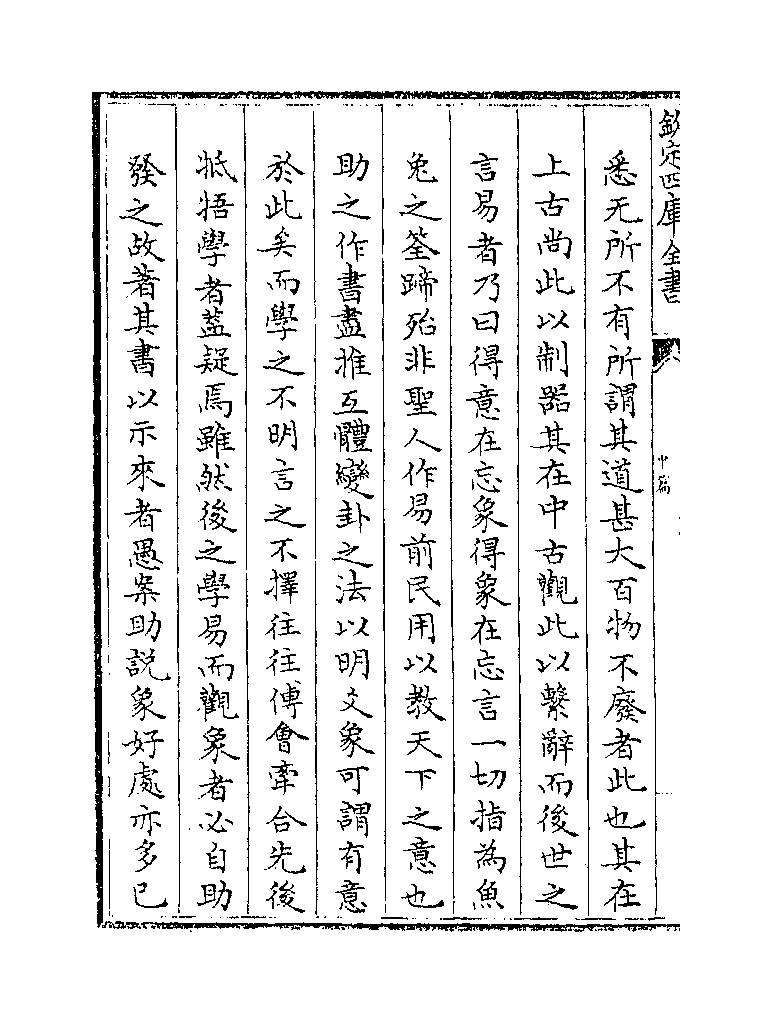 欽定四庫全書
中篇
悉无所不有所謂其道甚大百物不廢者此也其在
上古尚此以制器其在中古觀此以繫辭而後世之
言易者乃曰得意在忘象得象在忘言一切指為魚
兔之筌蹄殆非聖人作易前民用以教天下之意也
助之作書盡推互體變卦之法以明爻象可謂有意
於此矣而學之不明言之不擇往往傅會牽合先後
牴牾學者葢疑焉雖然後之學易而觀象者必自助
發之故著其書以示來者愚案助説象好處亦多已